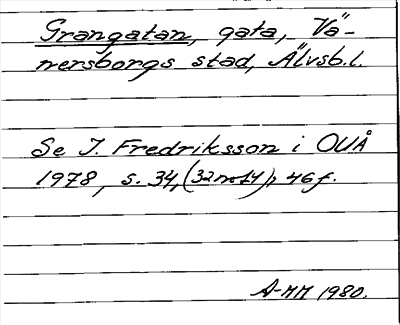 Grangatan, gata, Vä-
nersborgs stad, Älvsb.l.
Se I. Fredriksson i OUÅ
1978, s. 34, (32 not 4), 46 f.
A-MM 1980.